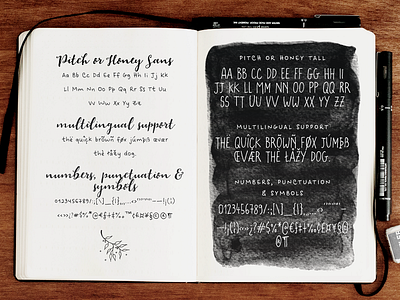 Pitch or Honey Sans
Aa Bb Cc Dd Ee Ff Gg Hh Ii Jj Kk
Ll Mm Nn Oo Pp Qq Rr Ss Tt Uu
Vv Ww Xx Yy Zz
multilingual support
thê quíçk brõwñ føx júmpß œvær
thé łåžy dog.
numbers, punctuation &
symbols
0123456789/:;[\]
PITCH OR HONEY TALL
AA BB CC DD EE FF GG HH II
JJ KK LL MM NN OO PP QQ RR
SS TT UU VV WW XX YY ZZ
MULTILINGUAL SUPPORT
THÊ QUÍÇK BRÕWÑ FØX JÚMPß
ŒVÆR THÉ ŁÅŽY DOG.
NUMBERS, PUNCTUATION
& SYMBOLS
0123456789/:;[\]